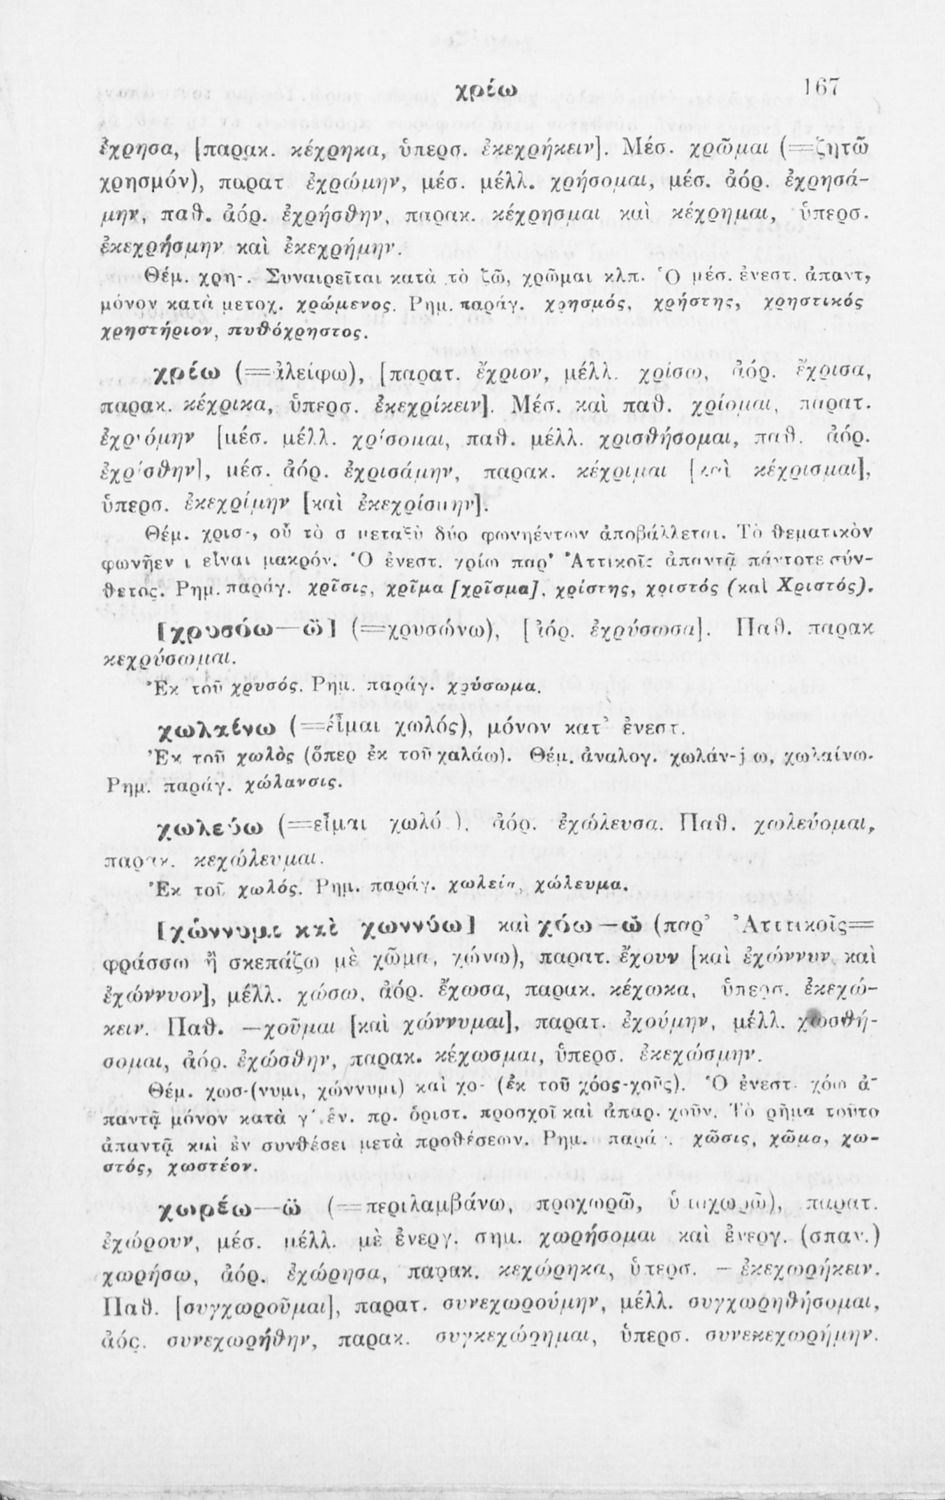 χρίω 167
ἔχρησα, [παρακ. κέχρηκα, ὑπερσ. ἐκεχρήκειν]. Μέσ. χρῶμαι (=ζητῶ
χρησμόν), παρατ ἐχρώμην, μέσ. μέλλ. χρήσομαι, μέσ. ἀόρ. ἐχρησά-
μην, παθ. ἀόρ. ἐχρήσθην, παρακ. κέχρησμαι καὶ κέχρημαι, ὑπερσ.
ἐκεχρήσμην καὶ ἐκεχρήμην.
Θέμ. χρη-. Συναιρεῖται κατὰ τὸ ζῶ, χρῶμαι κλπ. Ὁ μέσ. ἐνεστ. ἀπαντᾷ
μόνον κατὰ μετοχ. χρώμενος. Ρημ. παράγ. χρησμός, χρήστης, χρηστικός
χρηστήριον, πυθόχρηστος.
χρίω (=ἀλείφω), [παρατ. ἔχριον, μέλλ. χρίσω, ἀόρ. ἔχρισα,
παρακ. κέχρικα, ὑπερσ. ἐκεχρίκειν]. Μέσ. καὶ παθ. χρίομαι, παρατ.
ἐχριόμην [μέσ. μέλλ. χρίσομαι, παθ. μέλλ. χρισθήσομαι, παθ. ἀόρ.
ἐχρίσθην], μέσ. ἀόρ. ἐχρισάμην, παρακ. κέχριμαι [καὶ κέχρισμαι],
ὑπερσ. ἐκεχρίμην [καὶ ἐκεχρίσμην].
Θέμ. χρισ-, οὗ τὸ σ μεταξὺ δύο φωνηέντων ἀποβάλλεται. Τὸ θεματικὸν
φωνῆεν ι εἶναι μακρόν. Ὁ ἐνεστ. χρίω παρ' Ἀττικοῖς ἀπαντᾷ πάντοτε σύν-
θετος. Ρημ. παράγ. χρῖσις, χρῖμα [χρῖσμα], χρίστης, χριστός (καὶ Χριστός).
[χρυσόω—ῶ] (=χρυσώνω), [ἀόρ. ἐχρύσωσα]. Παθ. παρακ
κεχρύσωμαι.
Ἐκ τοῦ χρυσός. Ρημ. παράγ. χρύσωμα.
χωλαίνω (=εἶμαι χωλός), μόνον κατ' ἐνεστ.
Ἐκ τοῦ χωλὸς (ὅπερ ἐκ τοῦ χαλάω). Θέμ. ἀναλογ. χωλάν-j ω, χωλαίνω.
Ρημ. παράγ. χώλανσις.
χωλεύω (=εἶμαι χωλό ), ἀόρ. ἐχώλευσα. Παθ. χωλεύομαι,
παρακ. κεχώλευμαι.
Ἐκ τοῦ χωλός. Ρημ. παράγ. χωλεία, χώλευμα.
[χώννυμι καὶ χωννύω] καὶ χόω—ῶ (παρ' Ἀττικοῖς=
φράσσω ἢ σκεπάζω μὲ χῶμα, χώνω), παρατ. ἔχουν [καὶ ἐχώννυν καὶ
ἐχώννυον], μέλλ. χώσω, ἀόρ. ἔχωσα, παρακ. κέχωκα, ὑπερσ. ἐκεχώ-
κειν. Παθ. —χοῦμαι [καὶ χώννυμαι], παρατ. ἐχούμην, μέλλ. χωσθή-
σομαι, ἀόρ. ἐχώσθην, παρακ. κέχωσμαι, ὑπερσ. ἐκεχώσμην.
Θέμ. χωσ-(νυμι, χώννυμι) καὶ χο- (ἐκ τοῦ χόος-χοῦς). Ὁ ἐνεστ. χόω ἀ-
παντᾷ μόνον κατὰ γ' ἑν. πρ. ὁριστ. προσχοῖ καὶ ἀπαρ. χοῦν. Τὸ ρῆμα τοῦτο
ἀπαντᾷ καὶ ἐν συνθέσει μετὰ προθέσεων. Ρημ. παρά . χῶσις, χῶμα, χω-
στός, χωστέον.
χωρέω—ῶ (=περιλαμβάνω, προχωρῶ, ὑποχωρῶ), παρατ.
ἐχώρουν, μέσ. μέλλ. μὲ ἐνεργ. σημ. χωρήσομαι καὶ ἐνεργ. (σπαν.)
χωρήσω, ἀόρ. ἐχώρησα, παρακ. κεχώρηκα, ὑπερσ. – ἐκεχωρήκειν.
Παθ. [συγχωροῦμαι], παρατ. συνεχωρούμην, μέλλ. συγχωρηθήσομαι,
ἀόρ. συνεχωρήθην, παρακ. συγκεχώρημαι, ὑπερσ. συνεκεχωρήμην.